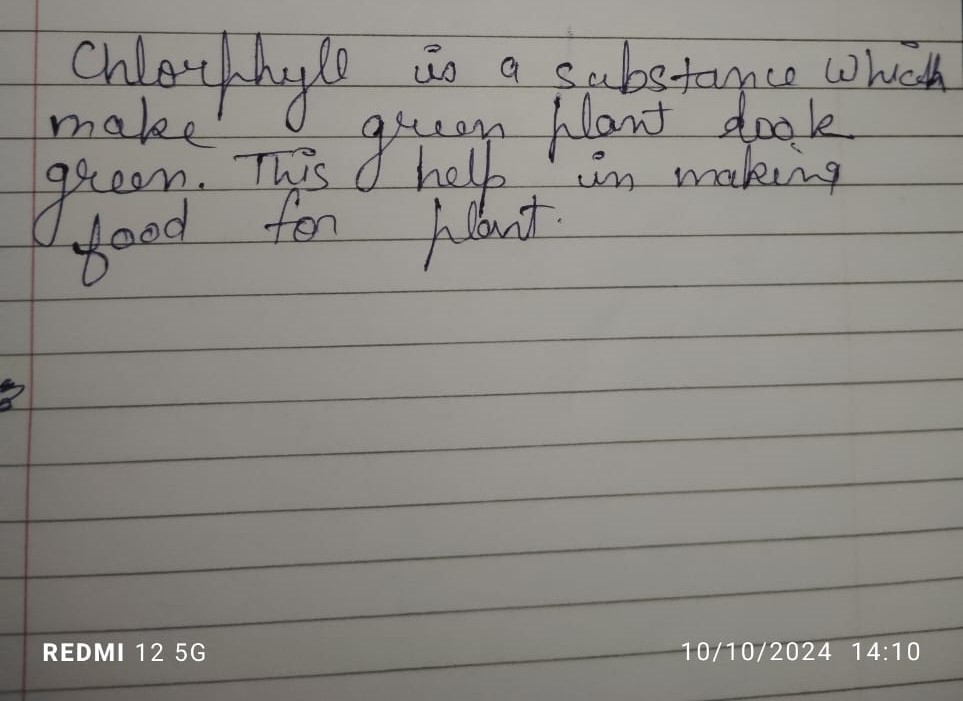 Chlorphyll is a substance which
make green plant look
green. This help in making
food for plant.
REDMI 12 5G
10/10/2024 14:10